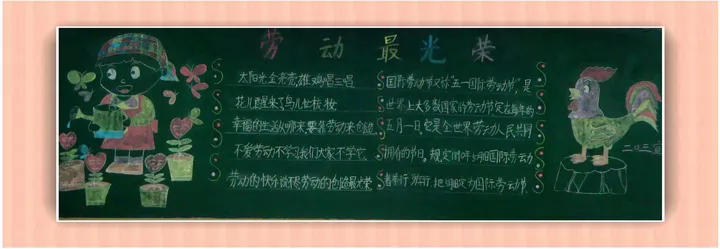 劳动最光荣
太阳光金亮亮,雄鸡唱三唱
花儿醒来了鸟儿忙梳妆
幸福的生活从哪来要靠劳动来创造
不爱劳动不学习我们大家不学它
劳动的快乐说不尽劳动的创造最光荣
国际劳动节又称"五一国际劳动节"是
世界上大多数国家的劳动节定在每年的
五月一日它是全世界劳动人民共同
拥有的节日,规定
国际劳动
国际劳动节
二O三